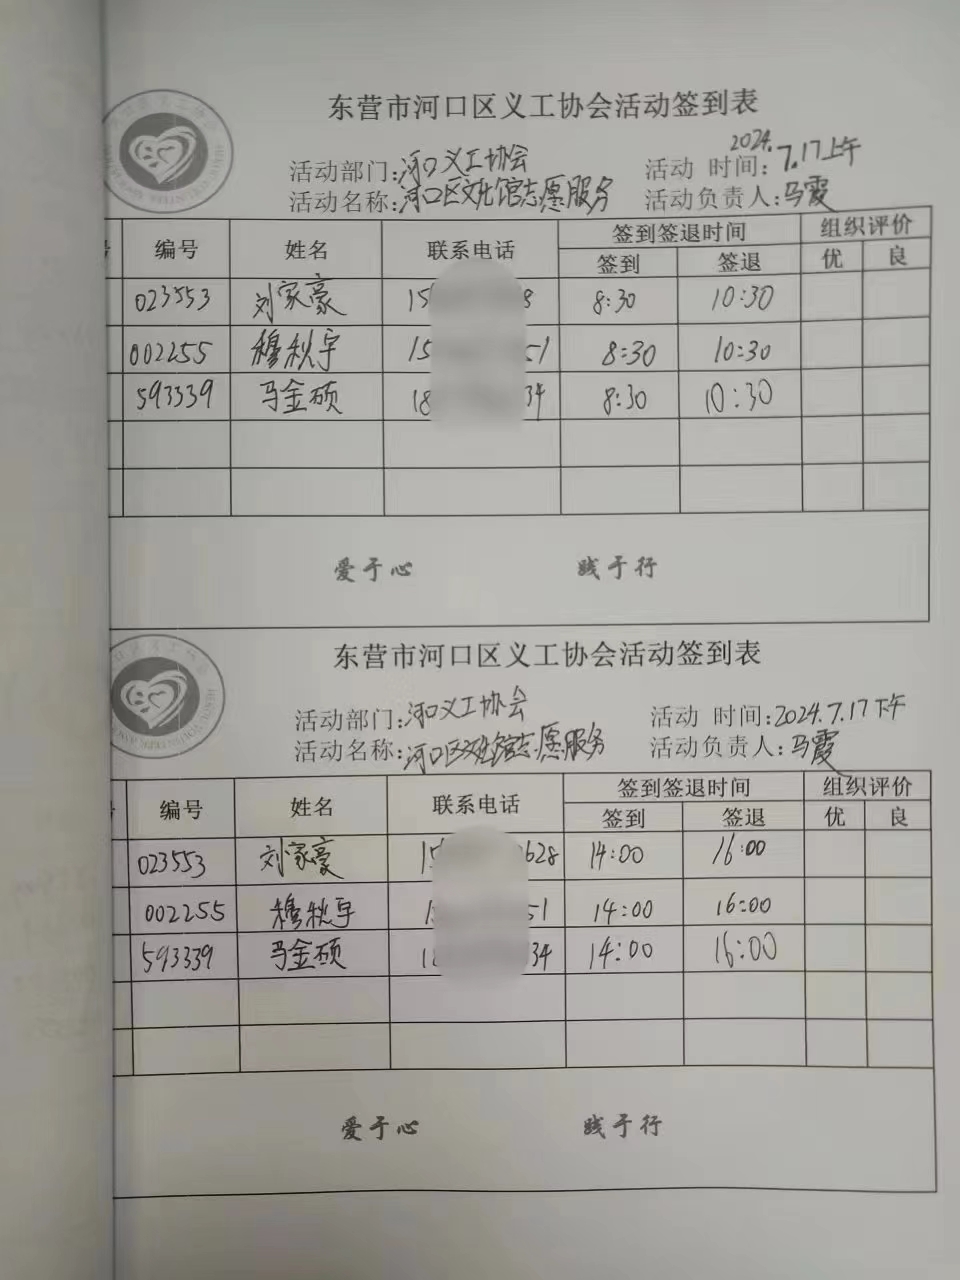 东营市河口区义工协会活动签到表
活动部门:河口义工协会 活动 时间:2024.7.17上午
活动名称:河口区文化馆志愿服务 活动负责人:马霞
编号 姓名 联系电话 签到签退时间 组织评价
签到 签退 优 良
023553 刘家豪 15 8 8:30 10:30
002255 穆秋宇 15 51 8:30 10:30
593339 马金硕 18 34 8:30 10:30
爱于心 践于行
东营市河口区义工协会活动签到表
活动部门:河口义工协会 活动 时间:2024.7.17下午
活动名称:河口区文化馆志愿服务 活动负责人:马霞
编号 姓名 联系电话 签到签退时间 组织评价
签到 签退 优 良
023553 刘家豪 15 628 14:00 16:00
002255 穆秋宇 1 51 14:00 16:00
593339 马金硕 18 34 14:00 16:00
爱于心 践于行